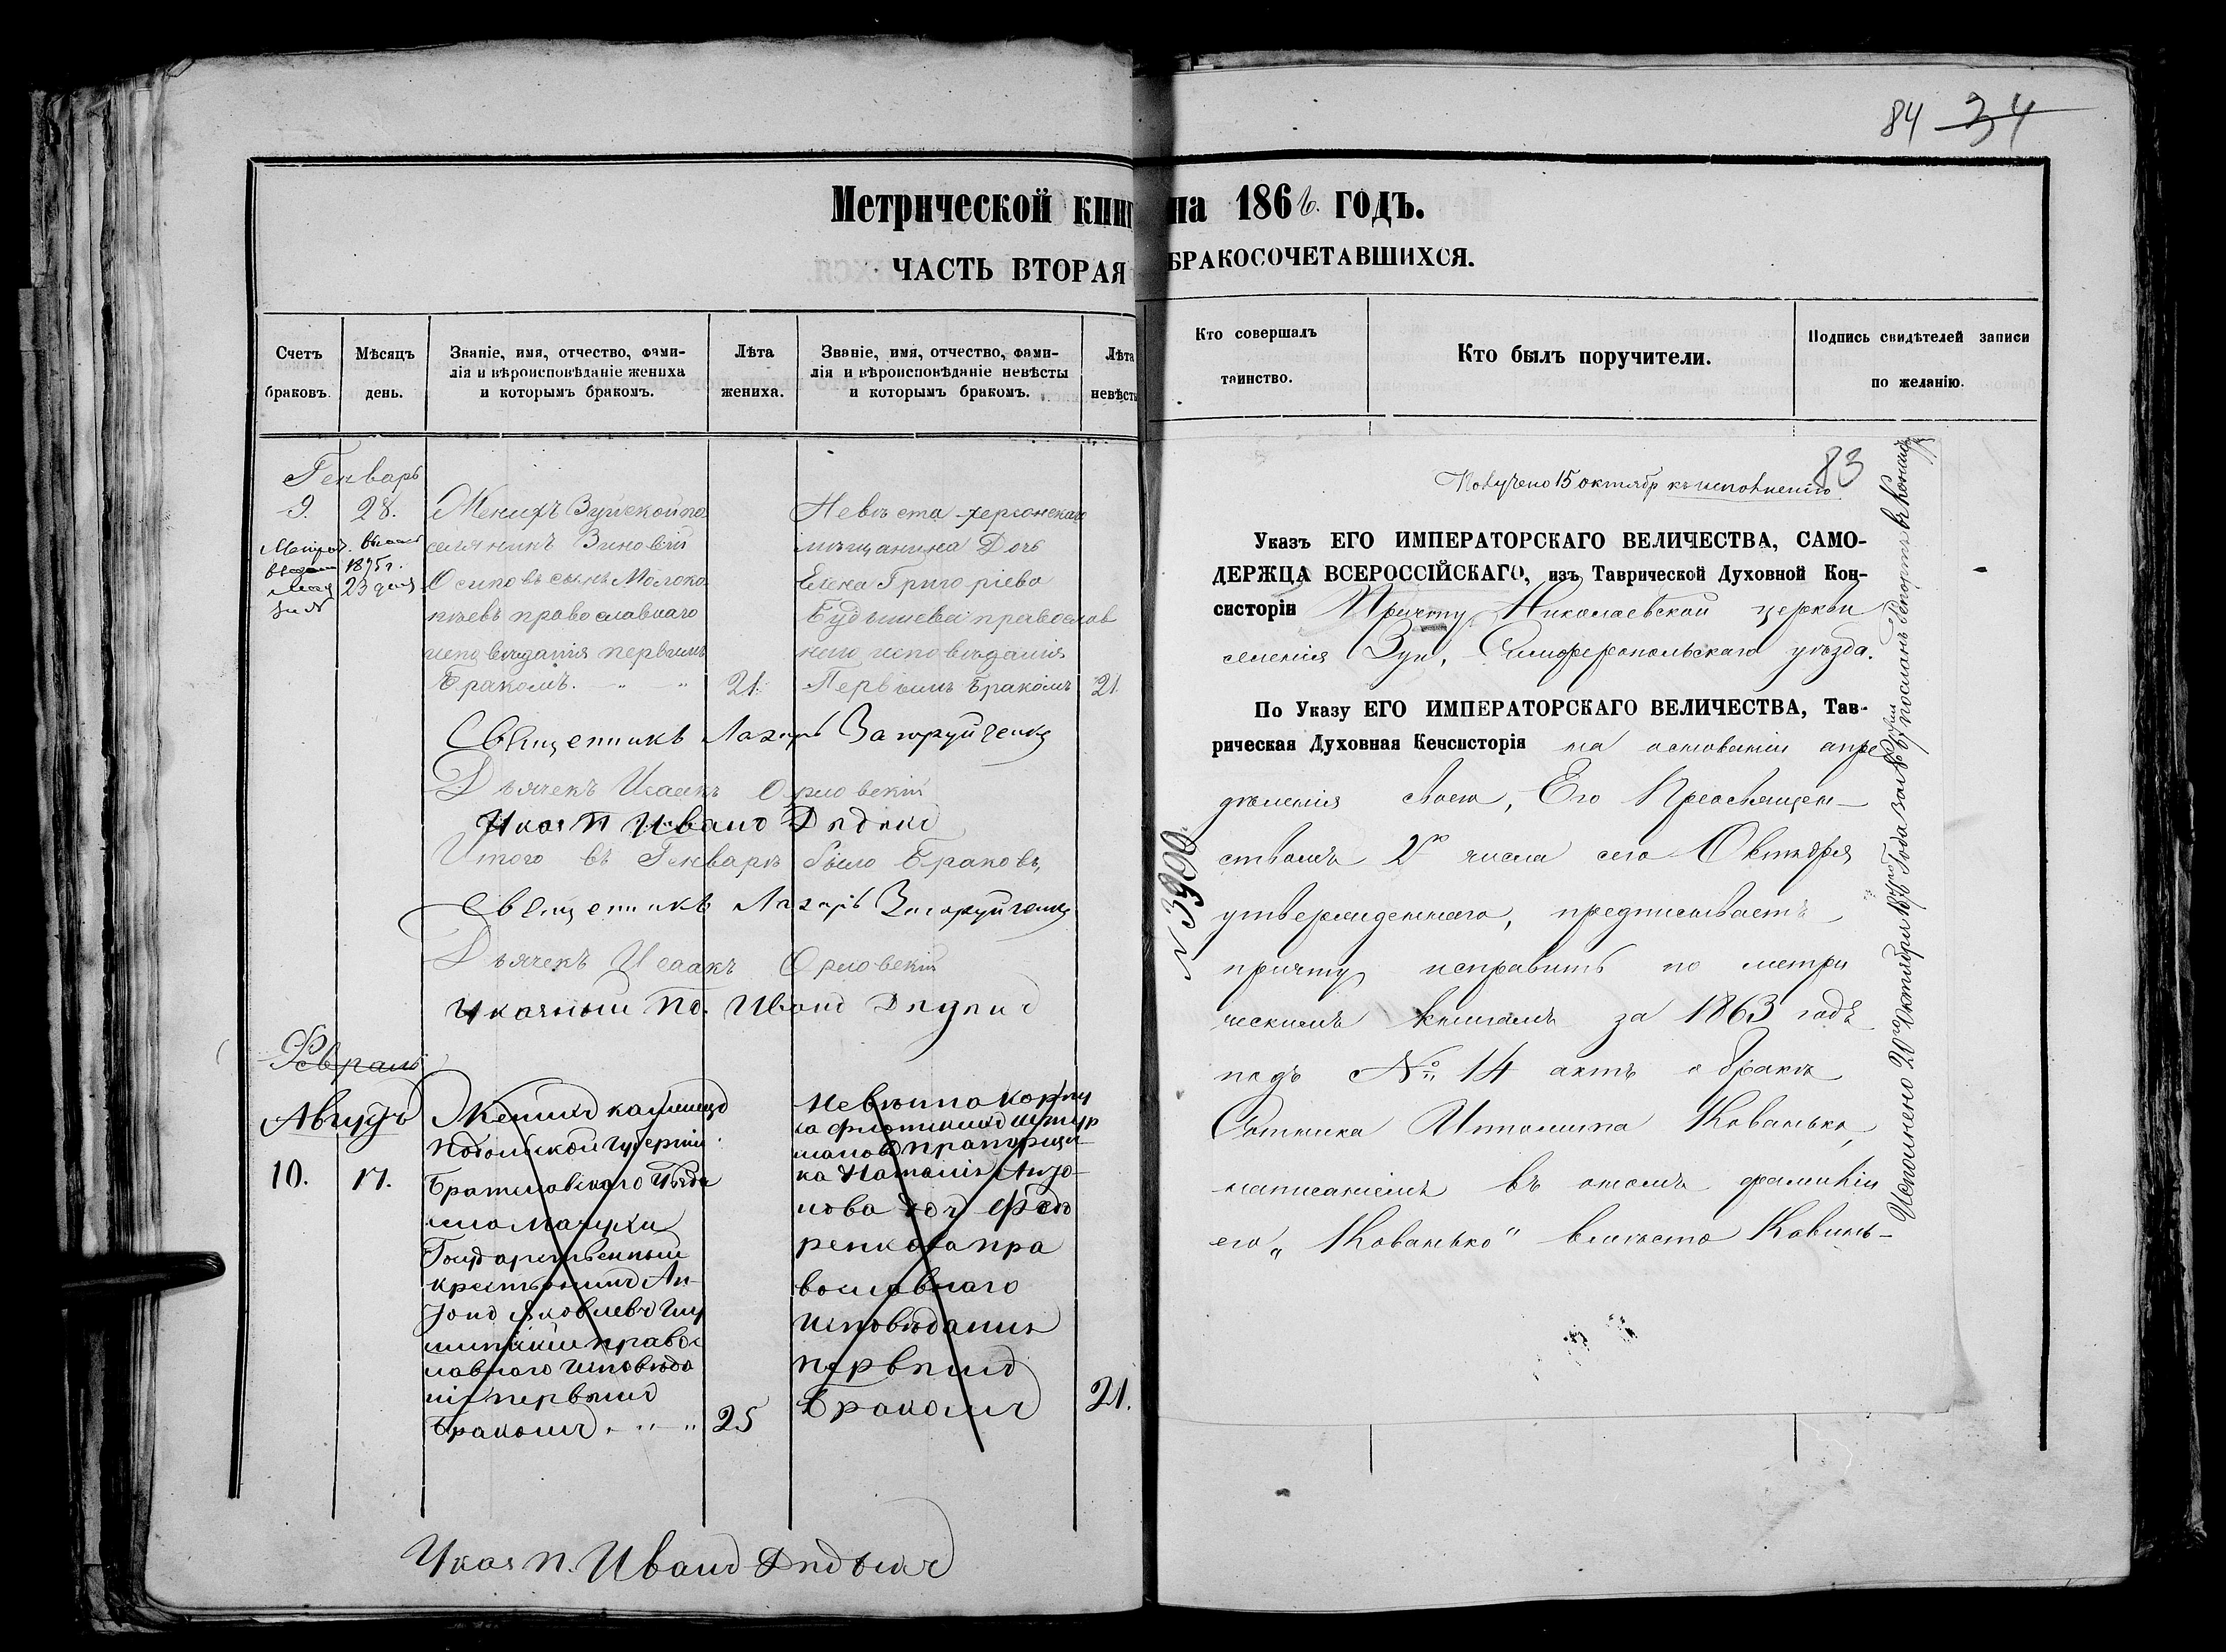 84 34
Метрической книг на 186 годъ.
ЧАСТЬ ВТОРАЯ БРАКОСОЧЕТАВШИХСЯ.
Счетъ браковъ.
Мѣсяцъ день.
Званіе, имя, отчество, фами-
лія и вѣроисповѣданіе жениха
и которымъ бракомъ.
Лѣта жениха.
Званіе, имя, отчество, фами-
лія и вѣроисповѣданіе невѣсты
и которымъ бракомъ.
Лѣта невѣсты
Генварь
9. 28.
1895 г.
23 дня
Женихъ Зуйской по
селяникъ Зиновій
Осиповъ сынъ Молоко
пѣевъ православнаго
исповѣданія первымъ
бракомъ. 21.
Невѣста херсонскаго
мѣщанина Дочь
Елена Григоріева
Будышева православ
наго исповѣданія
Первымъ бракомъ 21.
Священникъ Лазарь Загоруйченко
Дьячекъ Исаакъ Орловскій
Указ П Иванъ
Итого въ Генварѣ было браковъ,
Священникъ Лазарь Загоруйченко
Дьячекъ Исаакъ Орловскій
Указный По. Иванъ
Февраль
Августъ
10. 17.
Женихъ каменецъ
Подольской губерніи
Брацлавскаго уѣзда
села
Государственный
крестьянинъ Ан-
тонъ Яковлевъ
правос
лавнаго исповѣда
нія первымъ
бракомъ 25
Невѣста корпу
са флотскихъ штур
мановъ прапорщи-
ка Наталія Анто-
нова доч Федо
ренкова пра
вославнаго
исповѣданія
первымъ
бракомъ 21.
Указ П. Иванъ
Кто совершалъ
таинство.
Кто былъ поручители.
Подпись свидѣтелей записи
по желанію.
83
Получено 15 октябр къ исполненію
Указъ ЕГО ИМПЕРАТОРСКАГО ВЕЛИЧЕСТВА, САМО-
ДЕРЖЦА ВСЕРОССІЙСКАГО, изъ Таврической Духовной Кон-
систоріи Причту Николаевской церкви
селенія Зуи, Симферопольскаго уѣзда.
По Указу ЕГО ИМПЕРАТОРСКАГО ВЕЛИЧЕСТВА, Тав-
рическая Духовная Кенсисторія на основаніи опре
дѣленія своего, Его Преосвящен-
ствомъ 2го числа сего Октября
утвержденнаго, предписываетъ
причту исправить по метри
ческимъ книгамъ за 1863 годъ
подъ № 14 актъ о бракѣ
Сотника Ипполита Кованько,
написаніемъ въ ономъ фамиліи
его „Кованько“ вмѣсто Ковинь-
N 3900.
Исполнено 20го Октября Года за № посланъ Рапортъ въ Консист